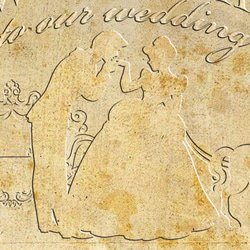 to our wedding